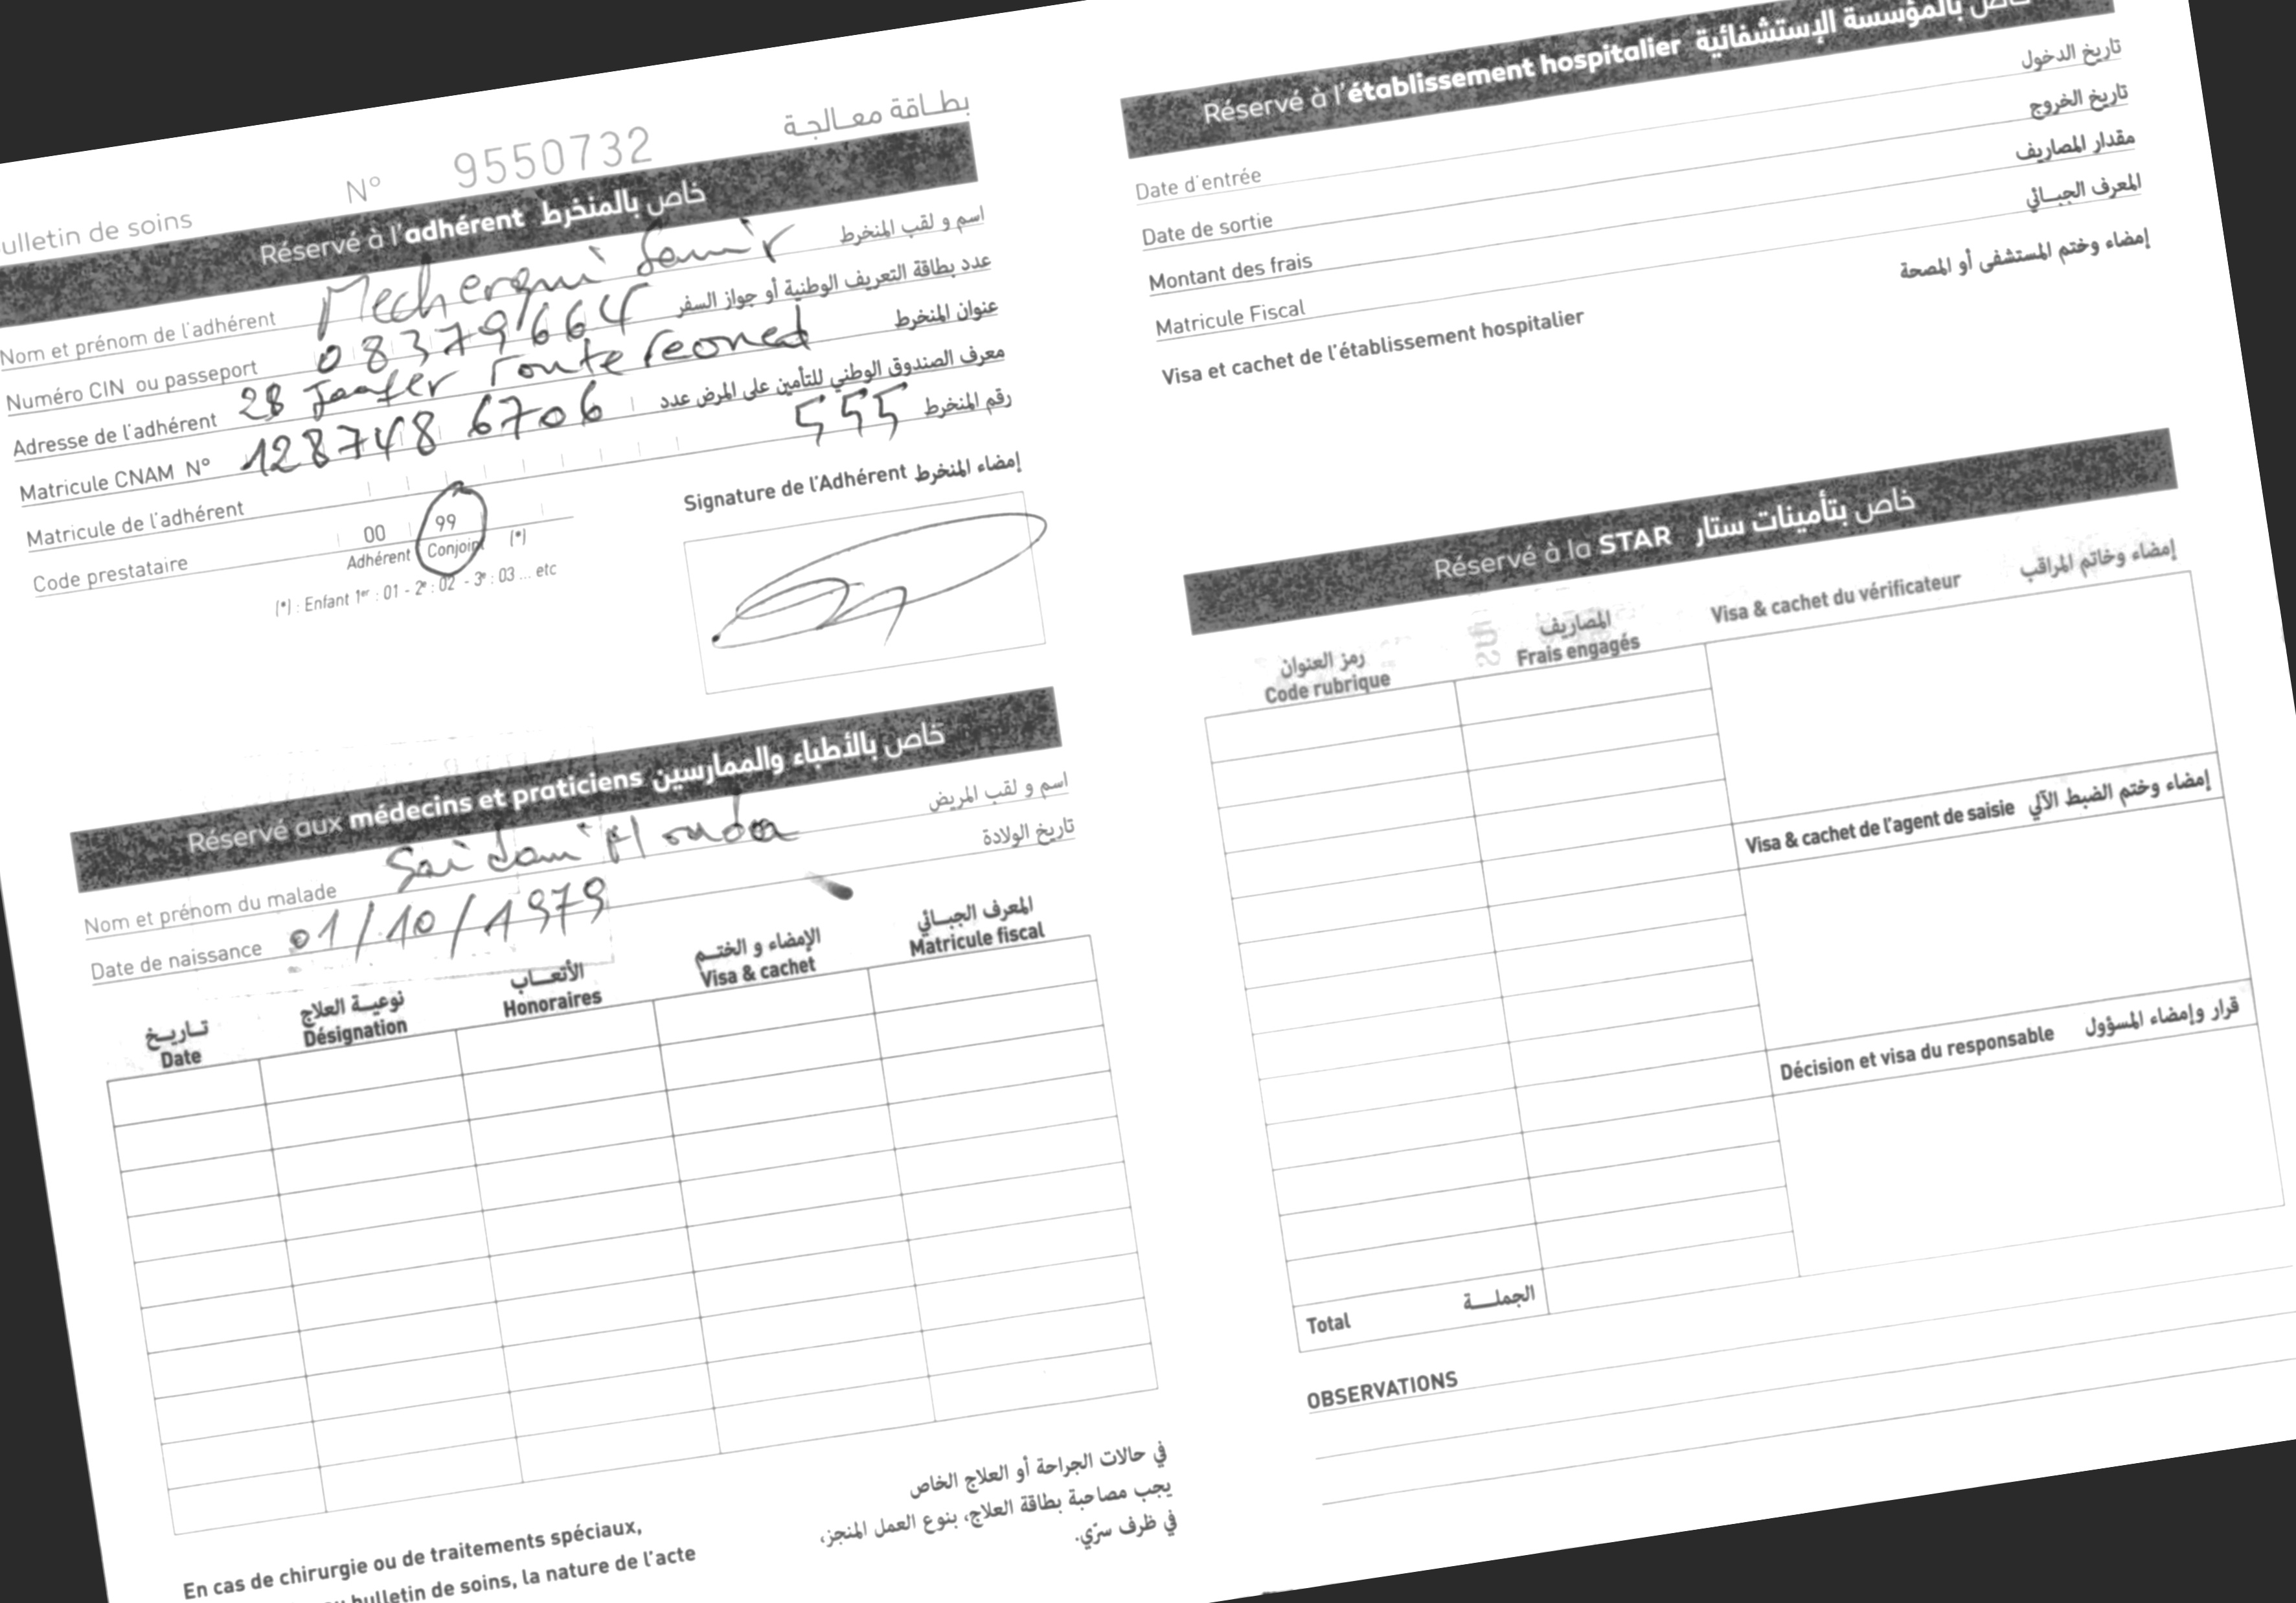 ulletin de soins N° 9550732 بطاقة معالجة
Réservé à l'adhérent خاص بالمنخرط
Nom et prénom de l'adhérent Mechergui Samir اسم و لقب المنخرط
Numéro CIN ou passeport 08379664 عدد بطاقة التعريف الوطنية أو جواز السفر
Adresse de l'adhérent 28 Jaafer route عنوان المنخرط
Matricule CNAM N° 128748 6706 معرف الصندوق الوطني للتأمين على المرض عدد
Matricule de l'adhérent 555 رقم المنخرط
Code prestataire 00 99
Adhérent Conjoint (*)
(*) : Enfant 1er : 01 - 2e : 02 - 3e : 03 ... etc
Signature de l'Adhérent إمضاء المنخرط
Réservé aux médecins et praticiens خاص بالأطباء والممارسين
Nom et prénom du malade Saidani Houda اسم و لقب المريض
Date de naissance 01/10/1979 تاريخ الولادة
تاريخ نوعية العلاج الأتعاب الإمضاء و الختم المعرف الجبائي
Date Désignation Honoraires Visa & cachet Matricule fiscal
En cas de chirurgie ou de traitements spéciaux,
bulletin de soins, la nature de l'acte
في حالات الجراحة أو العلاج الخاص
يجب مصاحبة بطاقة العلاج، بنوع العمل المنجز،
في ظرف سرّي.
Réservé à l'établissement hospitalier خاص بالمؤسسة الإستشفائية
Date d'entrée تاريخ الدخول
Date de sortie تاريخ الخروج
Montant des frais مقدار المصاريف
Matricule Fiscal المعرف الجبائي
Visa et cachet de l'établissement hospitalier إمضاء وختم المستشفى أو المصحة
Réservé à la STAR خاص بتأمينات ستار
رمز العنوان المصاريف
Code rubrique Frais engagés
Visa & cachet du vérificateur إمضاء وخاتم المراقب
Visa & cachet de l'agent de saisie إمضاء وختم الضبط الآلي
Décision et visa du responsable قرار وإمضاء المسؤول
Total الجملة
OBSERVATIONS